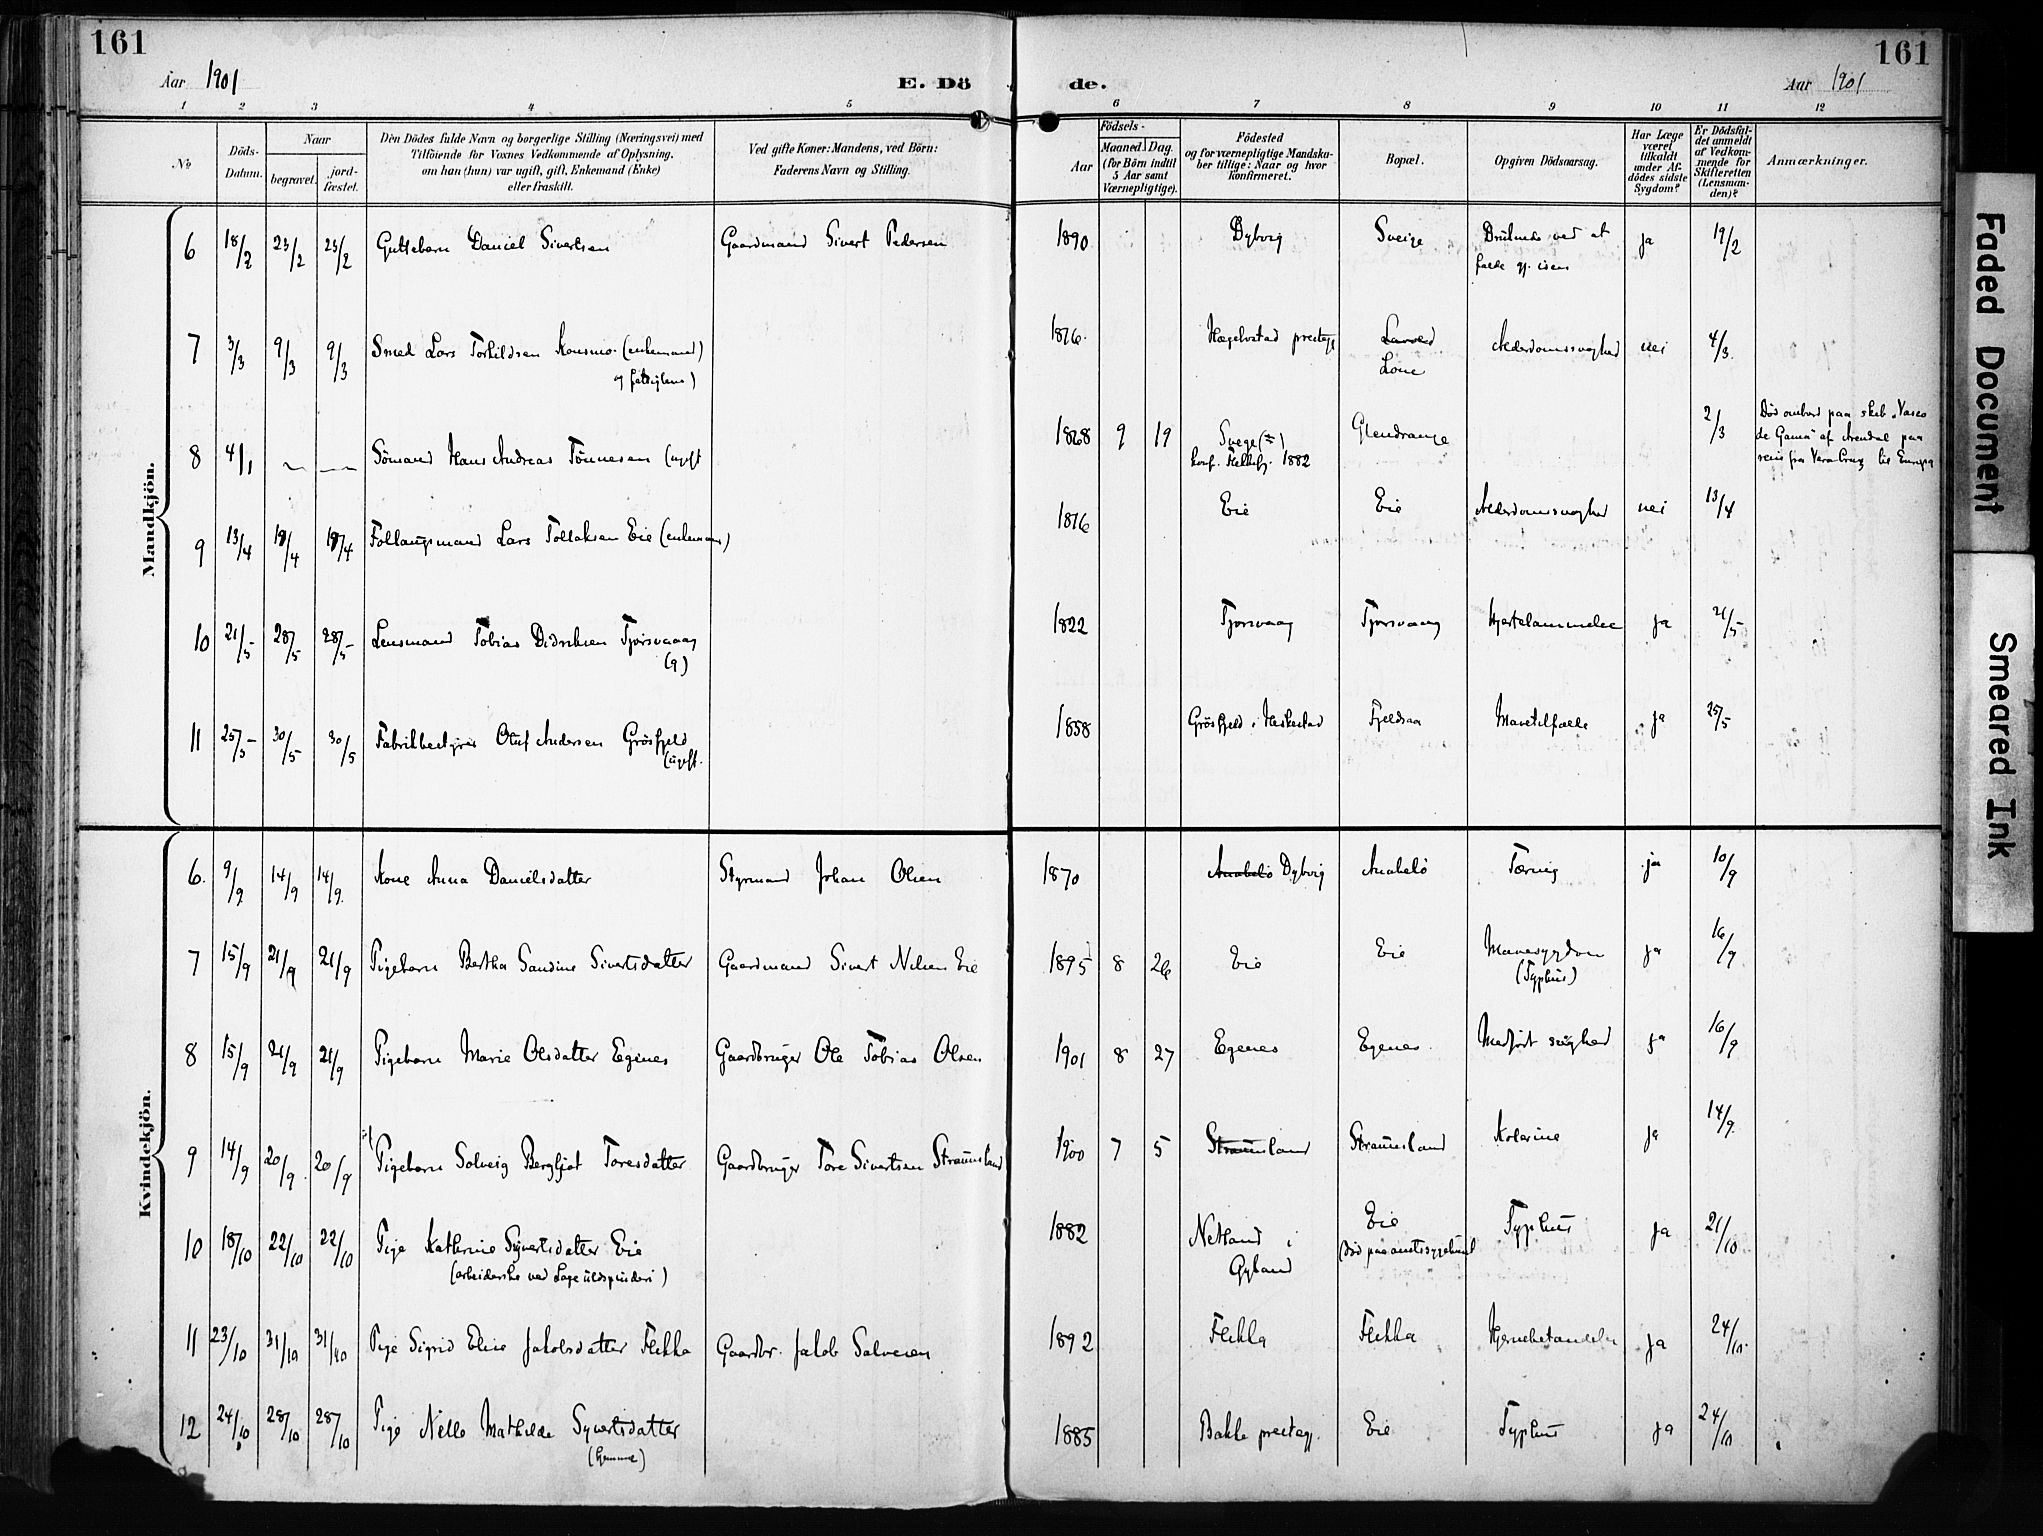 161
161
Aar 1901
E. Dö
de.
Aar 1901
1 2 3 4 5 6 7 8 9 10 11 12
No
Döds-
Datum.
Naar
begravet.
jord-
fæstet.
Den Dödes fulde Navn og borgerlige Stilling (Næringsvei) med
Tilföiende for Voxnes Vedkommende af Oplysning,
om han (hun) var ugift, gift, Enkemand (Enke)
eller fraskilt.
Ved gifte Koner: Mandens, ved Börn:
Faderens Navn og Stilling.
Födsels-
Aar
Maaned. Dag.
(for Börn indtil
5 Aar samt
Værnepligtige).
Födested
og for værnepligtige Mandska-
ber tillige: Naar og hvor
konfirmeret.
Bopæl.
Opgiven Dödsaarsag.
Har Læge
været
tilkaldt
under Af-
dödes sidste
Sygdom?
Er Dödsfal-
det anmeldt
af Vedkom-
mende for
Skifteretten
(Lensman-
den)?
Anmærkninger.
Mandkjön.
6 18/2 23/2 23/2 Guttebarn Daniel Sivertsen Gaardmand Sivert Pedersen 1890 Dybvig Sveige Druknede ved at ja 19/2
falde gj. isen
7 3/3 9/3 9/3 Smed Lars Torkildsen Konsmo (enkemand) 1816 Hægebostad prestegj. nei 4/3
og fattiglem) Loue
Alderdomssvaghed
8 4/1 — — Sömand Hans Andreas Tönnesen (ugift 1868 9 19 Svege Glendrange 2/3 Död ombord paa skib "Vasco
konf. 1882 de Gama" af Arendal paa
reise fra Vera Cruz til Europa
9 13/4 18/4 18/4 Föllaugsmand Lars Tollaksen Eie (enkemand) 1816 Eie Eie Alderdomssvaghed nei 13/4
10 21/5 28/5 28/5 Lensmand Tobias Didriksen Tjorsvaag 1822 Tjorsvaag Tjorsvaag Hjertelammelse ja 21/5
(g)
11 25/5 30/5 30/5 Fabrikbestyrer Oluf Andersen Grösfjeld 1858 Grösfjeld i Heskestad Fjeldsaa Mavetilfælde ja 25/5
(ugift.
Kvindekjön.
6. 9/9 14/9 14/9. Kone Anna Danielsdatter Styrmand Johan Olsen 1870 Anabelö Dybvig Anabelö Tæring ja 10/9
7 15/9 21/9 21/9 Pigebarn Bertha Sandine Sivertsdatter Gaardmand Sivert Nilsen Eie 1895 8 26 Eie Eie Mavesygdom ja 16/9
(Typhus)
8 15/9 21/9 21/9 Pigebarn Marie Olsdatter Egenes Gaardbruger Ole Tobias Olsen 1901 8 27 Egenes Egenes. Medfört svaghed ja 16/9
9 14/9 20/9 20/9 Pigebarn Solveig Bergljot Toresdatter Gaardbruger Tore Sivertsen Straumsland 1900 7 5 Straumsland Straumsland Kolerine ja 14/9.
10 18/10 22/10 22/10 Pige Kathrine Syvertsdatter Eie 1882 Netland i Eie Typhus ja 21/10
(arbeiderske ved Lage uldspinderi) Gyland (död paa amtssygehuset
11 23/10 31/10 31/10 Pige Sigrid Elise Jakobsdatter Flikka Gaardbr. Jakob Salvesen 1892 Flikka Flikka Hjernebetændelse ja 24/10.
12 24/10 28/10 28/10 Pige Nille Mathilde Syvertsdatter 1885 Bakke prestegj. Eie Typhus ja 24/10
(hjemme)
Faded Document
Smeared Ink